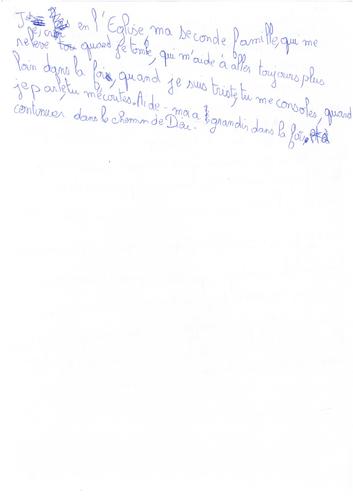 Je crois en l'Eglise, ma seconde famille, qui me
relève quand je tombe, qui m'aide à aller toujours plus
loin dans la foi, quand je suis triste, tu me consoles, quand
je parle, tu m'écoutes. Aide-moi à grandir dans la foi,
continuer dans le chemin de Dieu.